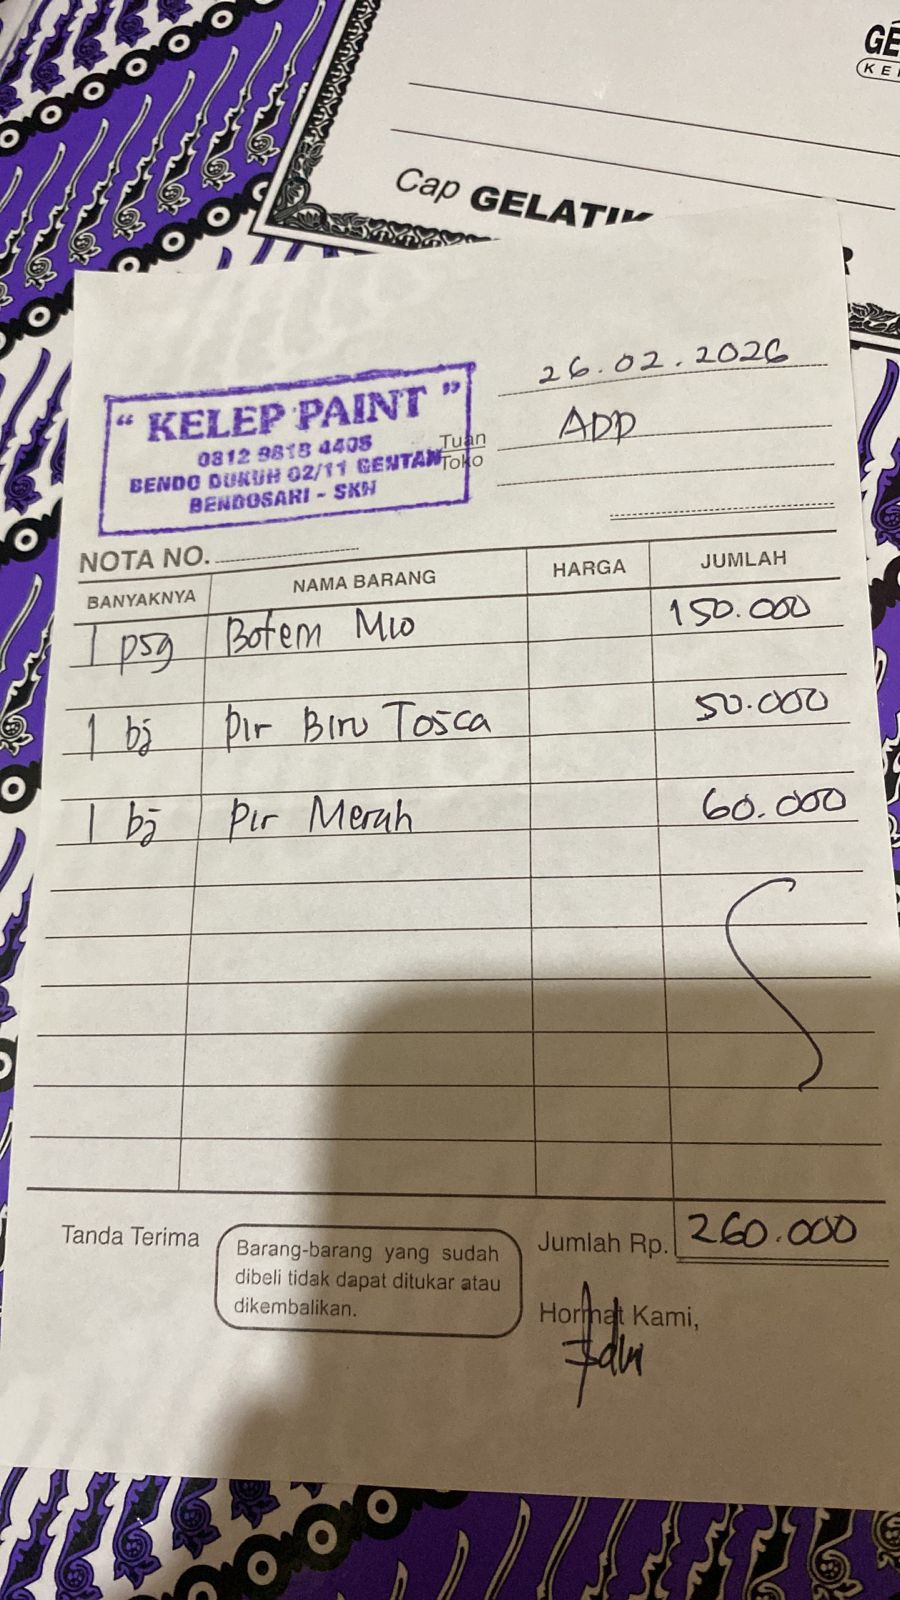 GE
KE
Cap GELATIK
R
26.02.2026
"KELEP PAINT"
0812 9818 4408
BENDO DUKUH 02/11 GENTAN
BENDOSARI - SKH
Tuan
Toko
ADD
NOTA NO.
BANYAKNYA NAMA BARANG HARGA JUMLAH
1 psg Botem Mio 150.000
1 bj Pir Biru Tosca 50.000
1 bj Pir Merah 60.000
Tanda Terima
Barang-barang yang sudah
dibeli tidak dapat ditukar atau
dikembalikan.
Jumlah Rp. 260.000
Hormat Kami,